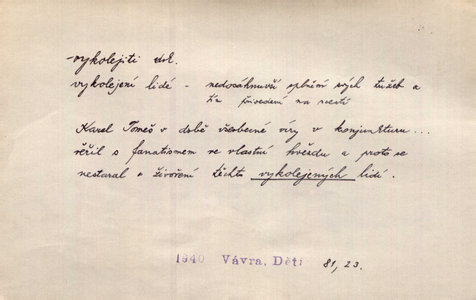 vykolejiti dok.
vykolejení lidé – nedosáhnuvší splnění svých tužeb a
tím přivedení na scestí
Karel Tomeš v době všeobecné víry v konjunkturu...
věřil s fanatismem ve vlastní hvězdu a proto se
nestaral o živoření těchto vykolejených lidí.
1940 Vávra, Děti 81, 23.